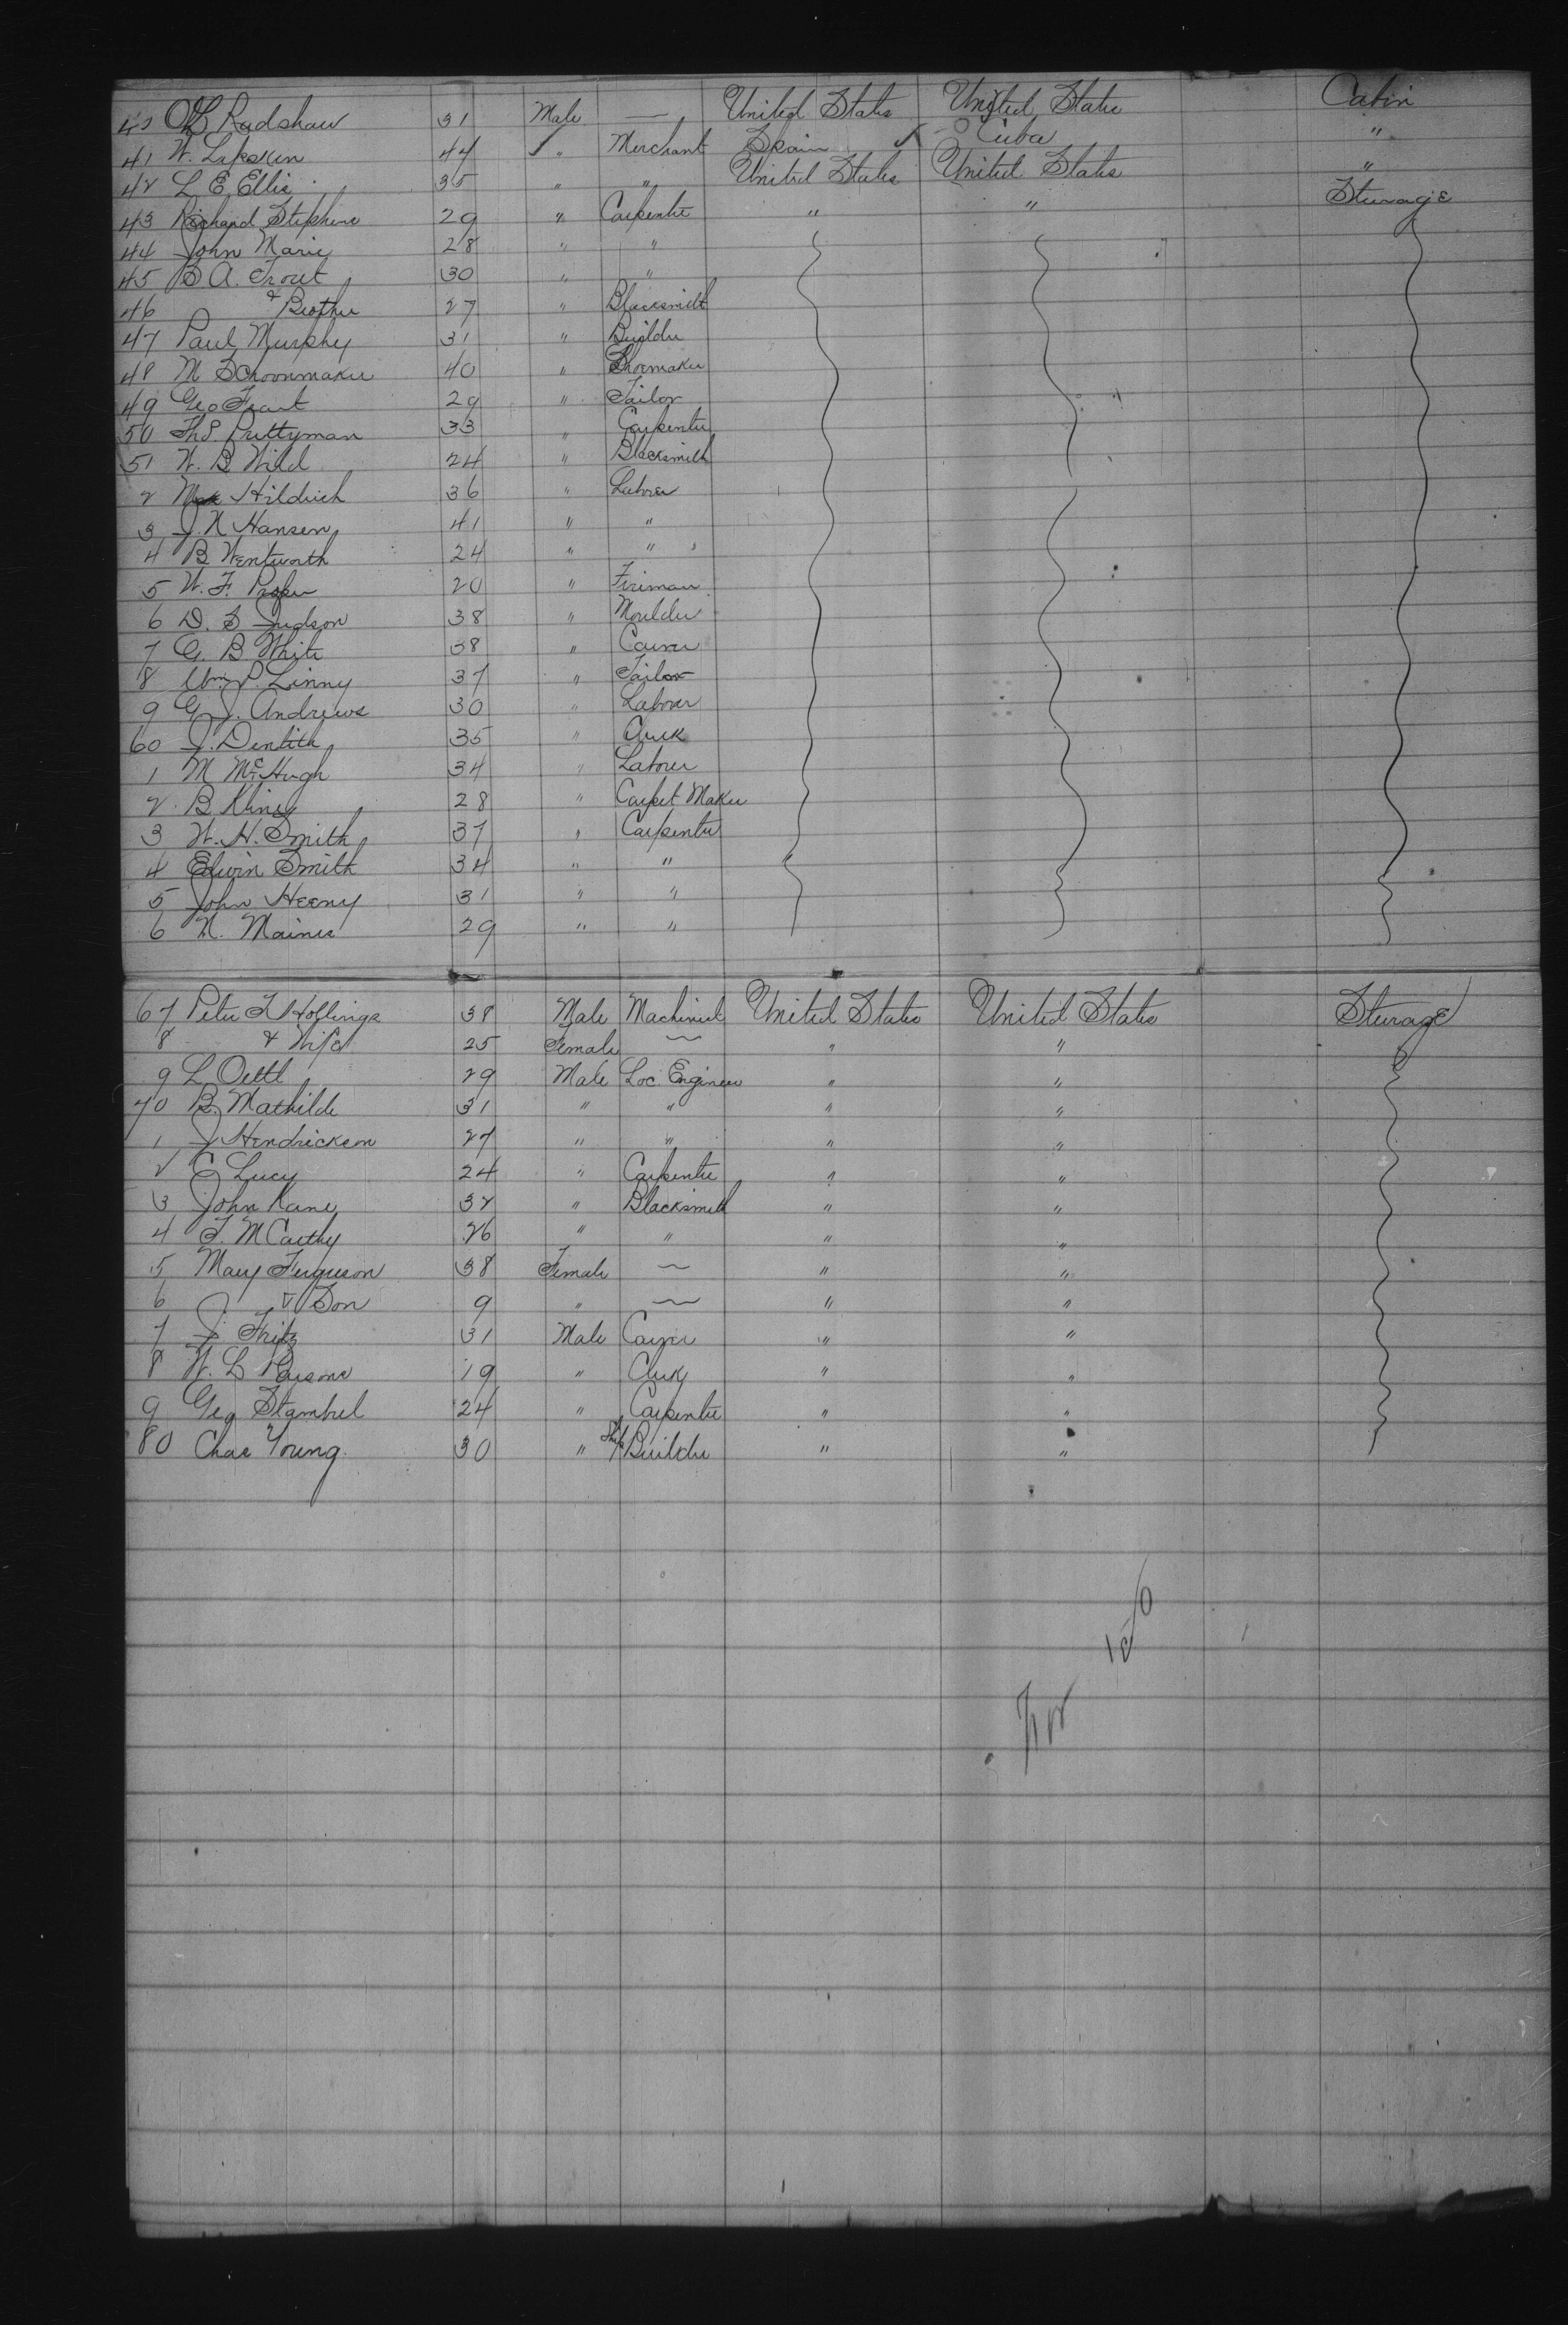 40 Radshaw 31 Male — United States United States Cabin
41 W. Lipskin 44 " Merchant Spain Cuba "
42 L E Ellis 35 " " United States United States "
43 Richard Stephens 29 " Carpenter " " Sturage
44 John Marie 28 " "
45 S A. Trout 30 " "
46 & Brother 27 " Blacksmith
47 Paul Murphy 31 " Builder
48 M Schoonmaker 40 " Shoemaker
49 Geo Frart 29 " Tailor
50 Prettyman 33 " Carpenter
51 W. B Wild 24 " Blacksmith
2 Hildrich 36 " Laborer
3 J. N Hansen 41 " "
4 B Wentworth 24 " "
5 W. F. 20 " Fireman
6 D. S Judson 38 " Moulder
7 G. B White 38 " Carver
8 Wm P. Linny 37 " Tailor
9 G J. Andrews 30 " Laborer
60 J. Dentith 35 " Clerk
1 M McHugh 34 " Laborer
2 B Kline 28 " Carpet Maker
3 W. H. Smith 37 " Carpenter
4 Edwin Smith 34 " " "
5 John Heeny 31 " "
6 N. Maines 29 " "
67 Peter T Hollings 38 Male Machinist United States United States Sturage
8 & Wife 25 Female — " "
9 L Oettl 29 Male Loc. Engineer " "
70 B. Mathilde 31 " " " "
1 J Hendrickson 27 " " " "
2 C Lucy 24 " Carpenter " "
3 John Kane 32 " Blacksmith " "
4 T. McCarthy 26 " " " "
5 Mary Ferguson 38 Female — " "
6 & Son 9 " — " "
7 J. Fritz 31 Male Carver " "
8 W. L Parsons 19 " Clerk " "
9 Geo Stambul 24 " Carpenter " "
80 Chas Young 30 " Ship Builder " "